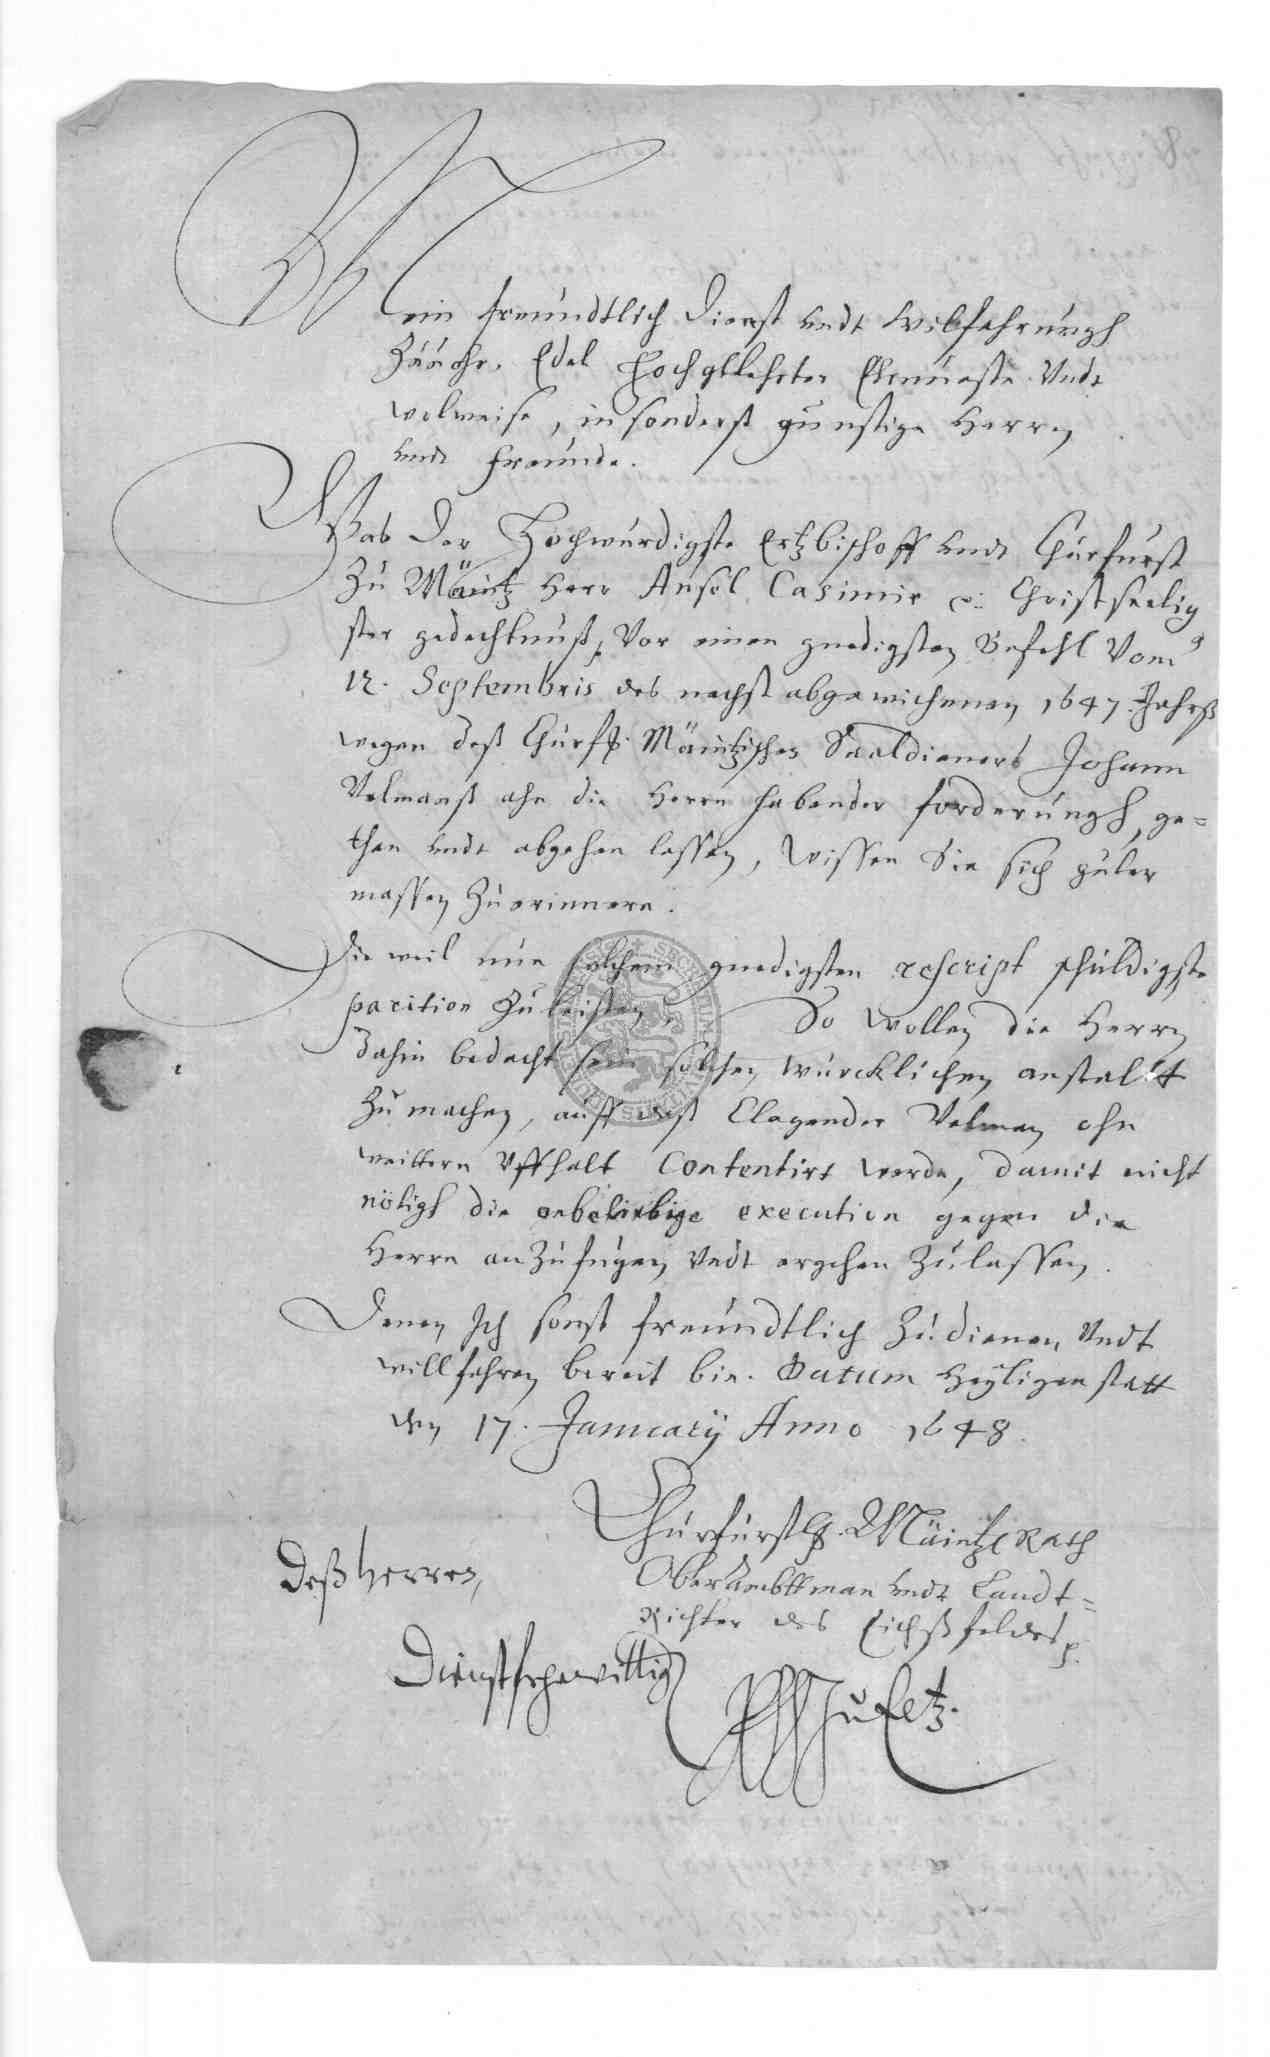 Mein freundtlich Dienst undt wilfahrungh
Zuuohr. Edel Hochgelehrter Ehrnueste Undt
wolweise, insonderst gunstige Herrn
undt Freunde.
Was der Hochwürdigste Ertzbischoff undt Churfurst
Zu Mäintz Herr Ansel. Casimir Christseelig
ster gedechtnuß, Vor einen gnedigsten Befehl Vom
12. Septembris des nechst abgewichenen 1647. Jahrß
wegen deß Churf. Mäintzischen Saaldieners Johann
Velmanß ahn die Herrn habender forderungh, ge=
than undt abgehen lassen, wissen Sie sich guter
massen Zuerinnern.
Die weil nun solchem gnedigsten rescript schuldigste
parition Zuleisten, So wollen die Herrn
dahin bedacht sein solchen würcklichen anstaltt
Zu machen, auff deß Clagender Velman ohn
weittern Uffhalt Contentirt werde, damit nicht
nötigh die unbeliebige execution gegen die
Herrn anZufugen Undt ergehen Zulassen.
Denen Ich sonst freundtlich Zudienen Undt
willfahren bereit bin. Datum Heyligenstatt
den 17. January Anno 1648.
Churfürstl. Mäintz Rath
Oberambttman undt Landt=
Richter des Eichßfeldes
Deß Herren,
Dienstfreywillig